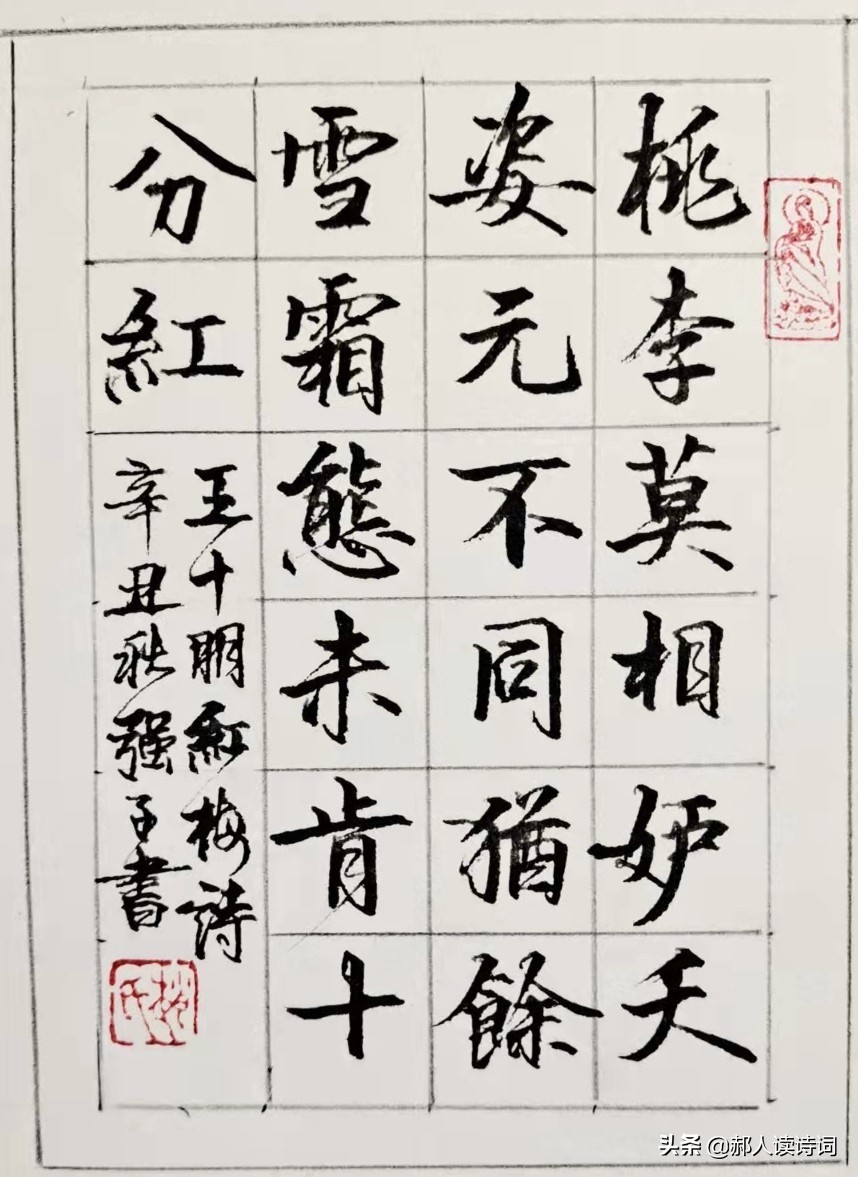 桃李莫相妒夭
姿元不同猶餘
雪霜態未肯十
分紅
王十朋紅梅詩
辛丑秋强子書
头条 @郝人读诗词